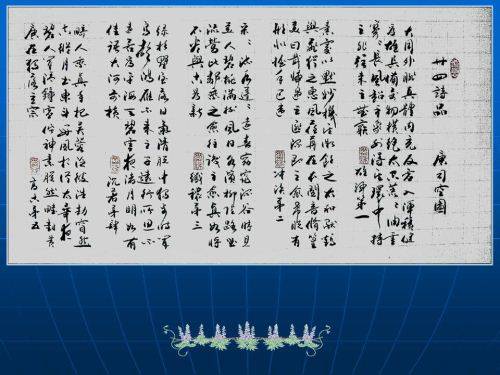 廿四詩品 唐司空圖
大用外腓真體內充反虛入渾積健
為雄具備萬物橫絕太空荒荒油雲
寥寥長風超以象外得其環中持
之非強來之無窮 雄渾第一
素處以默妙機其微飲之太和獨鶴
與飛猶之惠風荏苒在衣閱音修篁
美曰載歸遇之匪深即之愈希脫有
形似握手已違 沖淡第二
采采流水蓬蓬遠春窈窕深谷時見
美人碧桃滿樹風日水濱柳陰路曲
流鶯比鄰乘之愈往識之愈真如將
不盡與古為新 纖穠第三
綠杉野屋落日氣清脫巾獨步時聞
鳥聲鴻雁不來之子遠行所思不
遠若為平生海風碧雲夜渚月明如有
佳語大河前橫 沉著第四
畸人乘真手把芙蓉汎彼浩劫窅然
空蹤月出東斗好風相從太華夜
碧人聞清鐘虛佇神素脫然畦封黃
唐在獨落落玄宗 高古第五